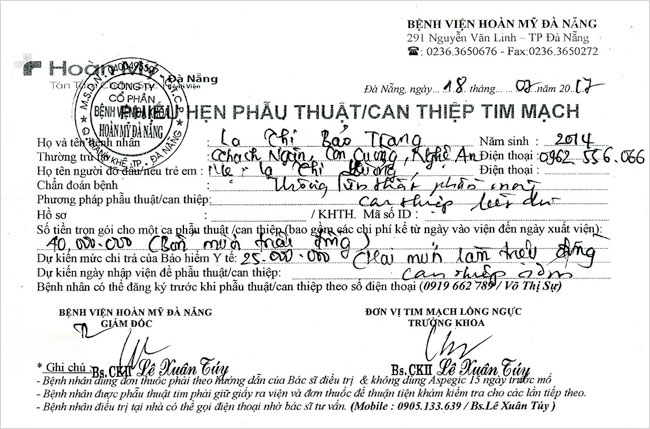 BỆNH VIỆN HOÀN MỸ ĐÀ NẴNG
291 Nguyễn Văn Linh – TP Đà Nẵng
☎: 0236.3650676 - Fax:0236.3650272
Hoàn Mỹ - Đà Nẵng
Bệnh Viện
M.S.D.N: 0400495597
CÔNG TY
CỔ PHẦN
BỆNH VIỆN
HOÀN MỸ ĐÀ NẴNG
Q. THANH KHÊ - TP. ĐÀ NẴNG
Đà Nẵng, ngày... 18 tháng... 07 năm 2017
PHIẾU HẸN PHẪU THUẬT/CAN THIỆP TIM MẠCH
Họ và tên bệnh nhân : La Thị Bảo Trang Năm sinh : 2014
Thường trú : Thạch Ngàn, Con Cuông, Nghệ An Điện thoại : 0962.556.066
Họ tên người đỡ đầu/nếu trẻ em : Mẹ: La Thị Điện thoại :
Chẩn đoán bệnh : Thông liên thất phần
Phương pháp phẫu thuật/can thiệp: can thiệp
Hồ sơ : / KHTH. Mã số ID :
Số tiền trọn gói cho một ca phẫu thuật /can thiệp (bao gồm các chi phí kể từ ngày vào viện đến ngày xuất viện):
40,000.000 (Bốn mươi triệu đồng)
Dự kiến mức chi trả của Bảo hiểm Y tế: 25.000.000 (Hai mươi lăm triệu đồng
Dự kiến ngày nhập viện để phẫu thuật/can thiệp: can thiệp sớm
Bệnh nhân có thể đăng ký trước khi phẫu thuật/can thiệp theo số điện thoại (0919 662 789 / Võ Thị Sự)
BỆNH VIỆN HOÀN MỸ ĐÀ NẴNG
GIÁM ĐỐC
ĐƠN VỊ TIM MẠCH LỒNG NGỰC
TRƯỞNG KHOA
Bs.CKII Lê Xuân Túy
Bs.CKII Lê Xuân Túy
* Ghi chú :
- Bệnh nhân dùng đơn thuốc phải theo hướng dẫn của Bác sĩ điều trị & không dùng Aspegic 15 ngày trước mổ
- Bệnh nhân được phẫu thuật tim phải giữ giấy ra viện và đơn thuốc để thuận tiện khám kiểm tra cho các lần tiếp theo.
- Bệnh nhân điều trị tại nhà có thể gọi điện thoại nhờ bác sĩ tư vấn. (Mobile : 0905.133.639 / Bs.Lê Xuân Túy )